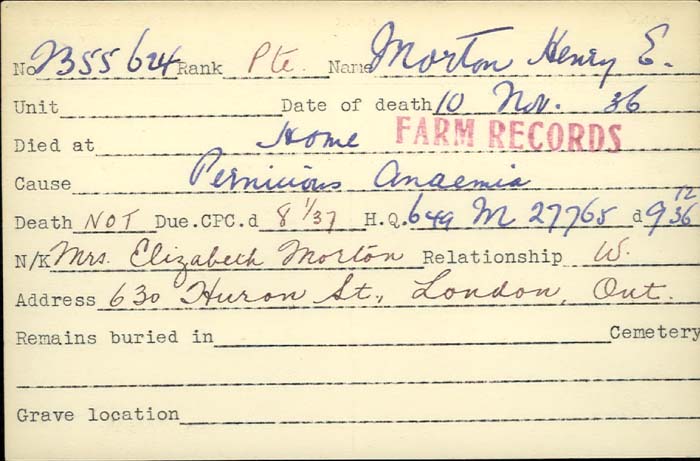 No 2355624 Rank Pte. Name Morton Henry E.
Unit Date of death 10 Nov. 36
Died at Home FARM RECORDS
Cause Pernicious Anaemia
Death NOT Due.CPC.d 8 1/37 H.Q. 649 M 27765 d 9 12/36
N/K Mrs. Elizabeth Morton Relationship W.
Address 630 Huron St., London, Ont.
Remains buried in Cemetery
Grave location